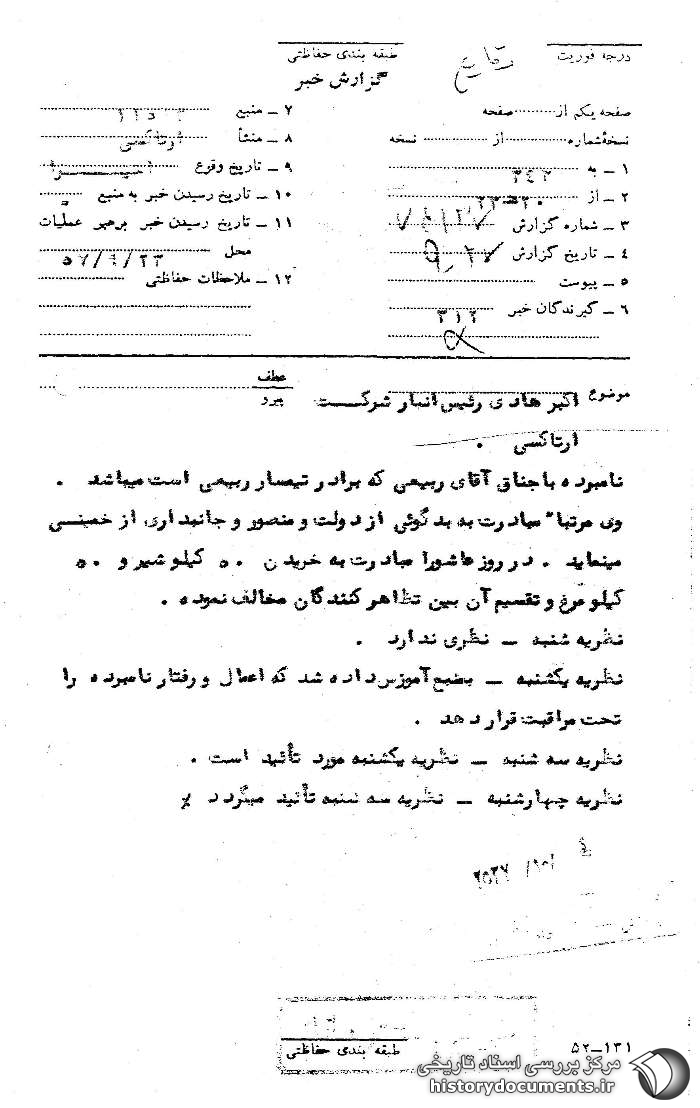 درجه فوریت
طبقه بندی حفاظتی
گزارش خبر
صفحه یکم از صفحه
نسخهٔ شماره از نسخه
۱ ـ به ۳۴۲
۲ ـ از
۳ ـ شماره گزارش
۴ ـ تاریخ گزارش
۵ ـ پیوست
۶ ـ گیرندگان خبر ۳۱۲
۷ ـ منبع
۸ ـ منشأ
۹ ـ تاریخ وقوع
۱۰ ـ تاریخ رسیدن خبر به منبع
۱۱ ـ تاریخ رسیدن خبر برهبر عملیات
محل ۵۷/۹/۲۳
۱۲ ـ ملاحظات حفاظتی
عطف
پیرو
موضوع اکبر هادی رئیس انبار شرکت
ارتاکسی .
نامبرده باجناق آقای ربیعی که برادر تیمسار ربیعی است میباشد .
وی مرتبا" مبادرت به بدگوئی از دولت و منصور و جانبداری از خمینی
مینماید . در روز عاشورا مبادرت به خریدن ۵۰ کیلو شیر و ۵۰
کیلو مرغ و تقسیم آن بین تظاهرکنندگان مخالف نموده .
نظریه شنبه ـ نظری ندارد .
نظریه یکشنبه ـ بمنبع آموزش داده شد که اعمال و رفتار نامبرده را
تحت مراقبت قرار دهد .
نظریه سه شنبه ـ نظریه یکشنبه مورد تأئید است .
نظریه چهارشنبه ـ نظریه سه شنبه تأئید میگردد
طبقه بندی حفاظتی
۵۲ـ۱۳۱
مرکز بررسی اسناد تاریخی
historydocuments.ir